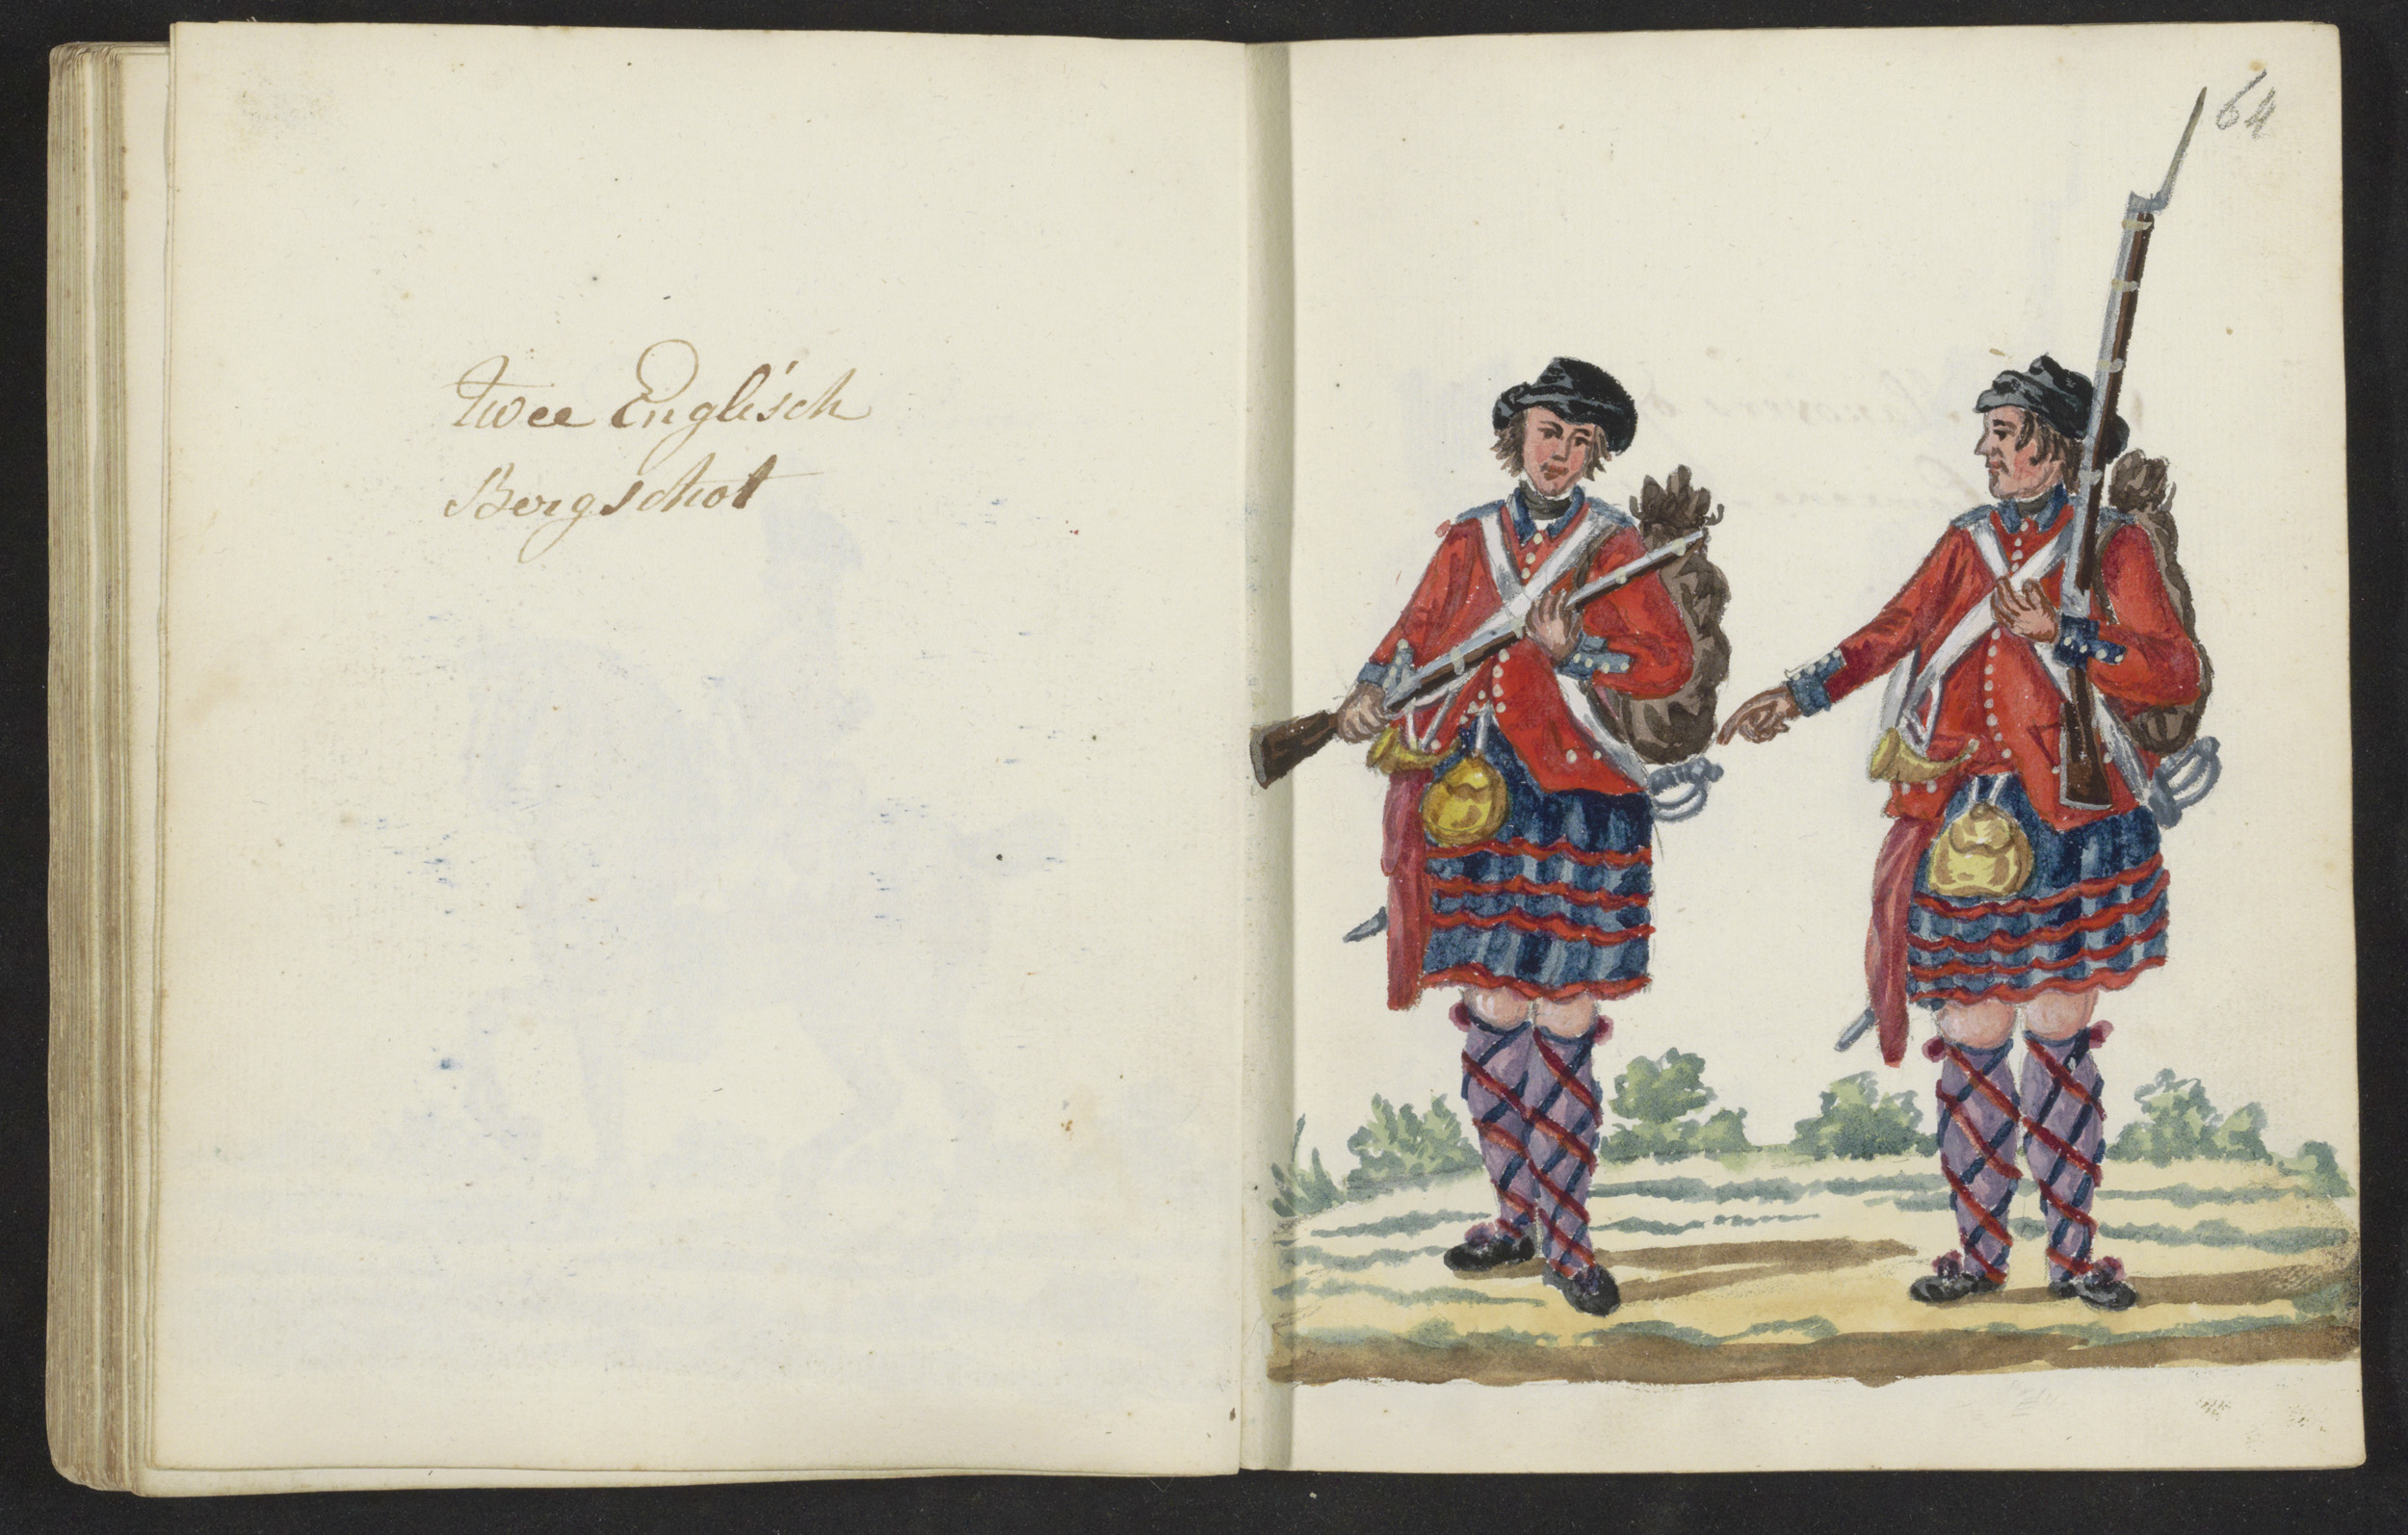 twee Englisch
Bergschot
64